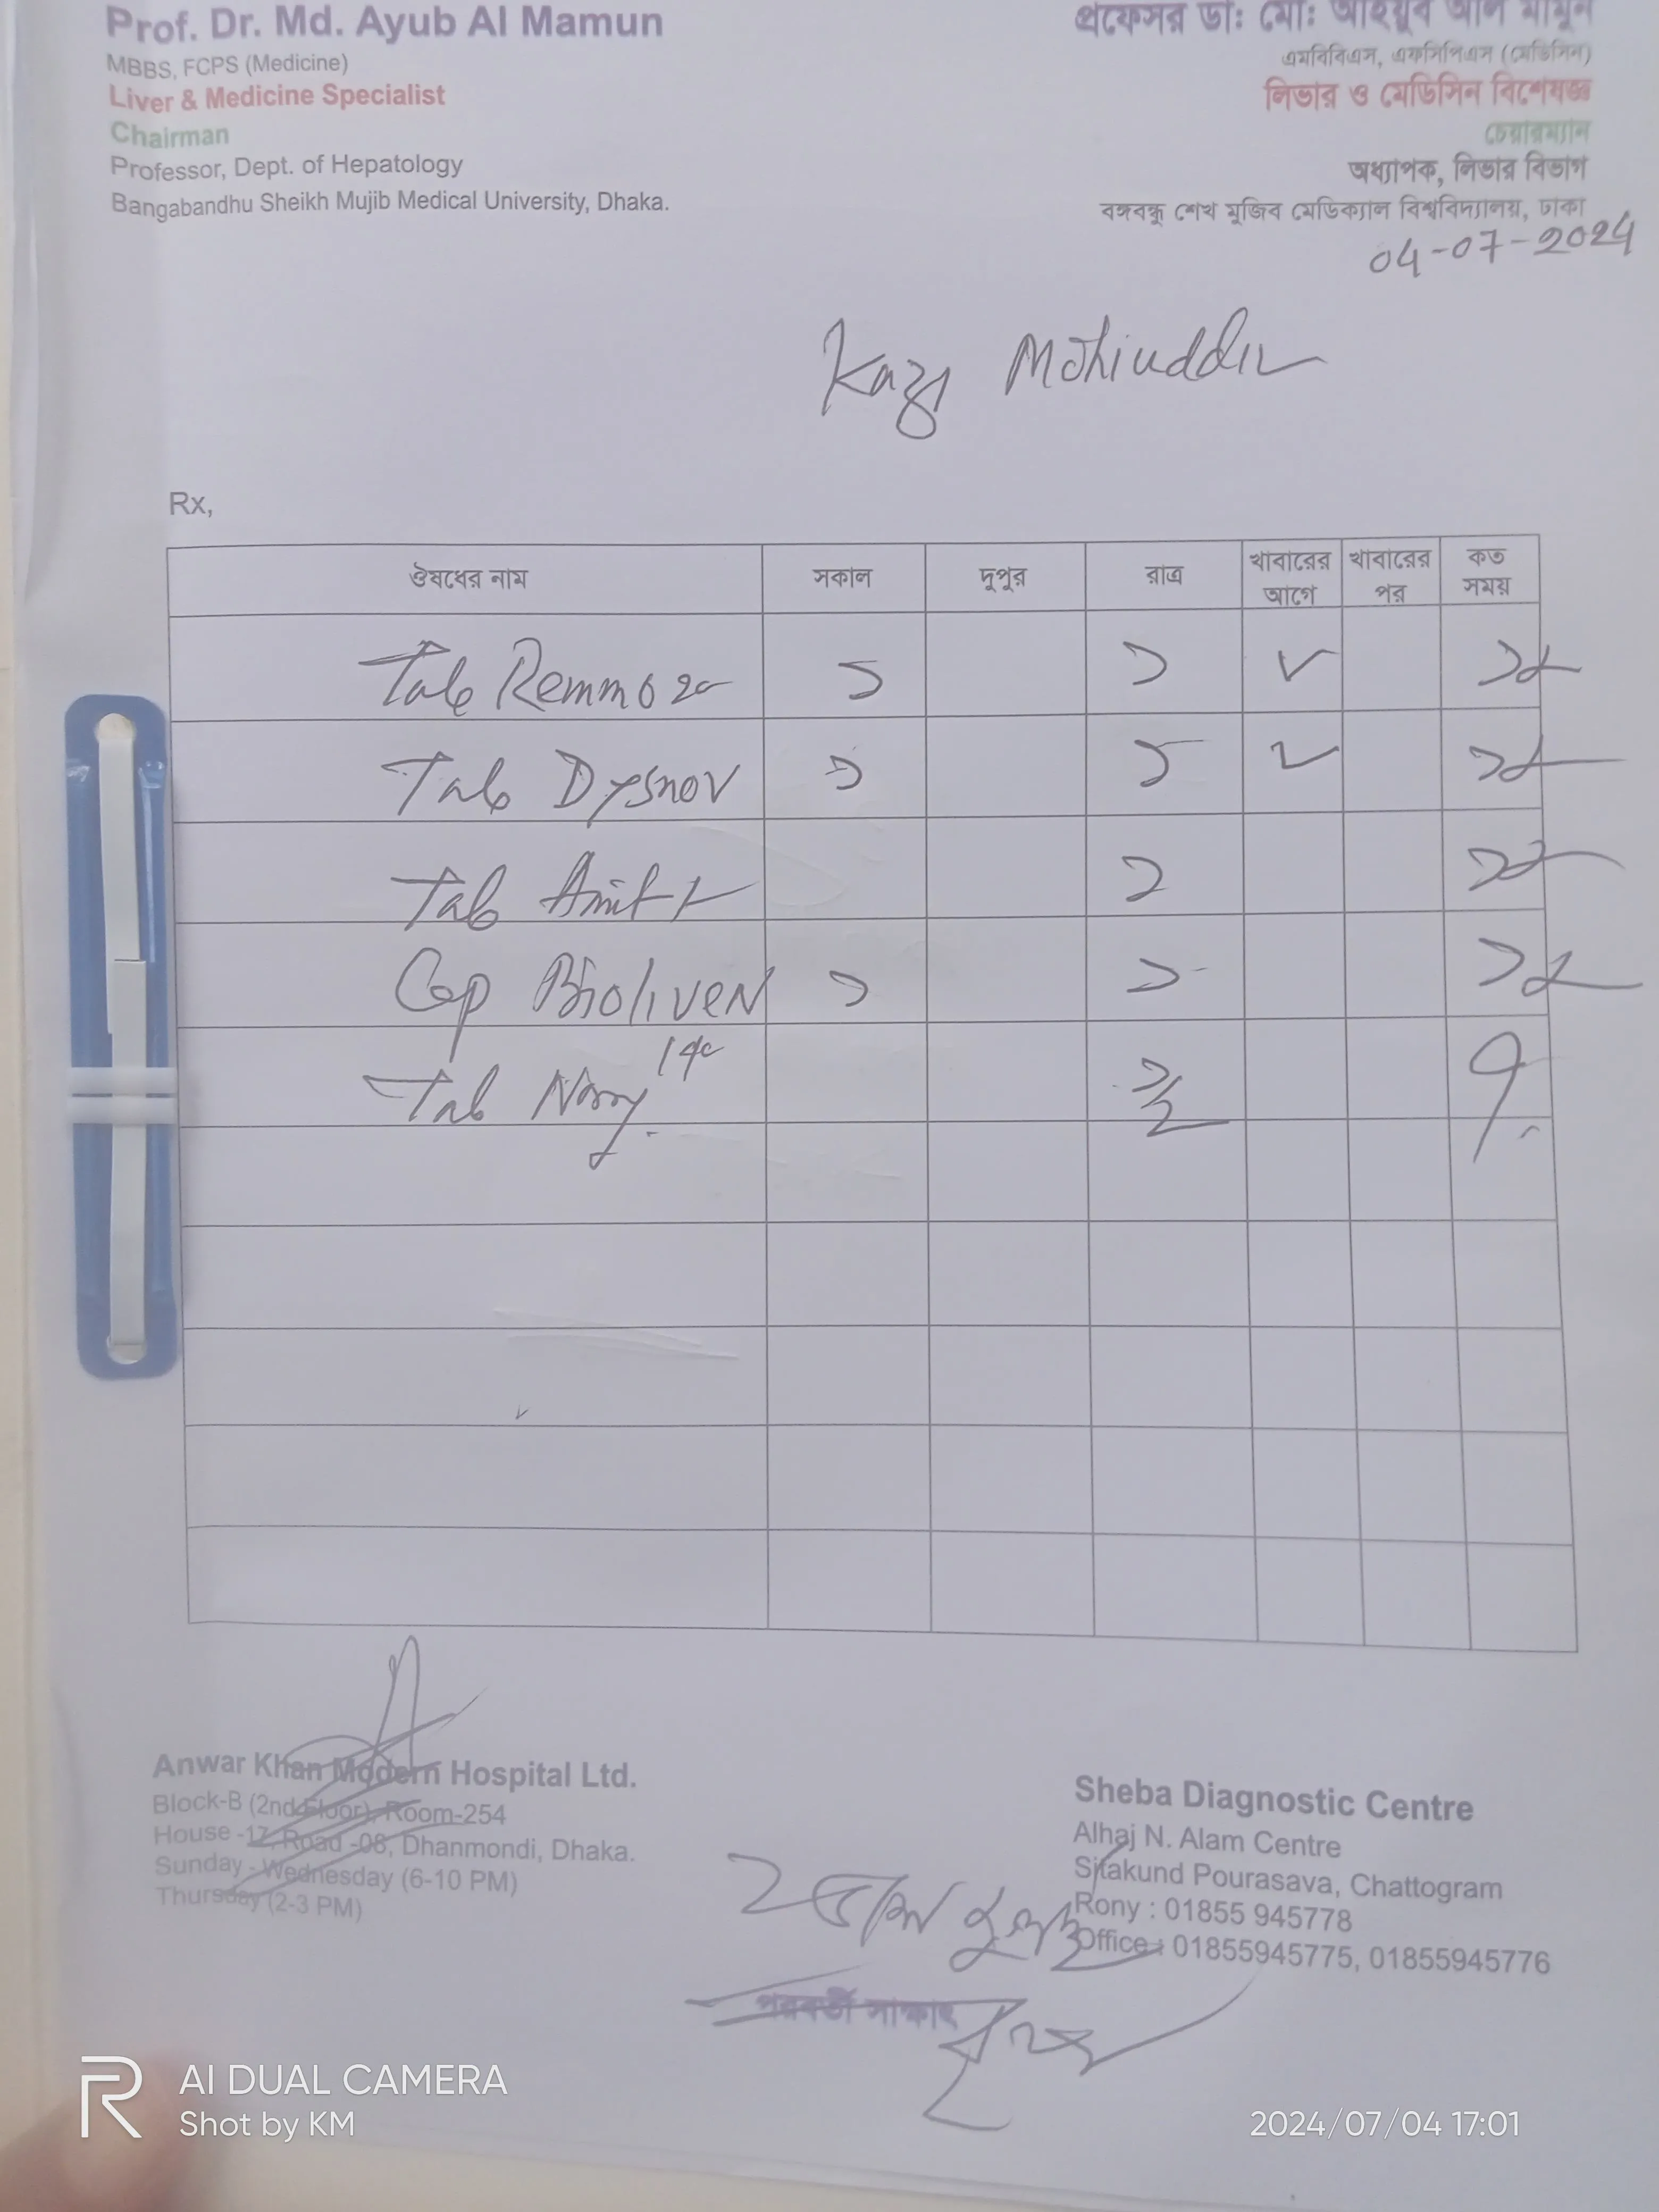 Prof. Dr. Md. Ayub Al Mamun
MBBS, FCPS (Medicine)
Liver & Medicine Specialist
Chairman
Professor, Dept. of Hepatology
Bangabandhu Sheikh Mujib Medical University, Dhaka.
প্রফেসর ডাঃ মোঃ আইয়ুব আল মামুন
এমবিবিএস, এফসিপিএস (মেডিসিন)
লিভার ও মেডিসিন বিশেষজ্ঞ
চেয়ারম্যান
অধ্যাপক, লিভার বিভাগ
বঙ্গবন্ধু শেখ মুজিব মেডিক্যাল বিশ্ববিদ্যালয়, ঢাকা
04-07-2024
Kazi Mohiuddin
Rx,
ঔষধের নাম সকাল দুপুর রাত্র খাবারের আগে খাবারের পর কত সময়
Tab Remmo 20 ১ ১ ✓
Tab Dysnov ১ ১ ✓
Tab ১
Cap Bioliven 140 ১ ১
Tab
Anwar Khan Modern Hospital Ltd.
Block-B (2nd Floor), Room-254
House -17, Road -08, Dhanmondi, Dhaka.
Sunday - Wednesday (6-10 PM)
Thursday (2-3 PM)
Sheba Diagnostic Centre
Alhaj N. Alam Centre
Sitakund Pourasava, Chattogram
Rony : 01855 945778
Office : 01855945775, 01855945776
পরবর্তী সাক্ষাৎ
R
AI DUAL CAMERA
Shot by KM
2024/07/04 17:01